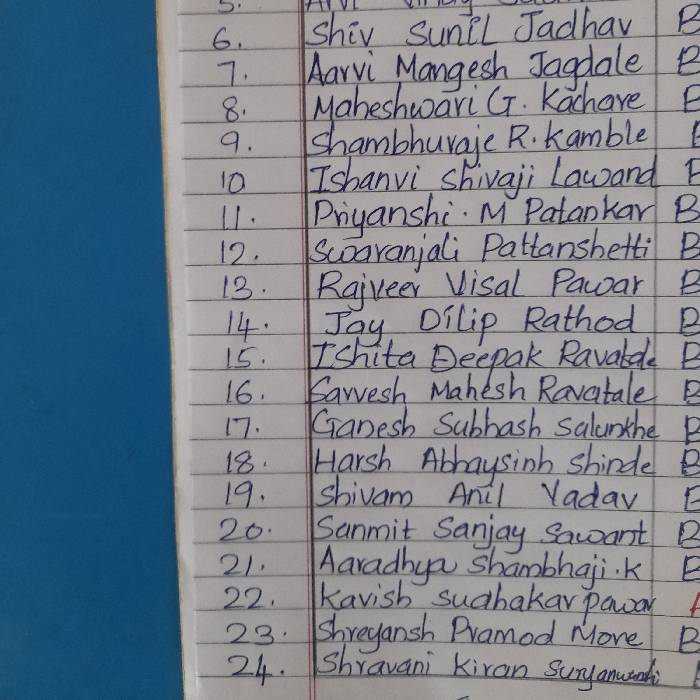 5.
6. Shiv Sunil Jadhav B
7. Aarvi Mangesh Jagdale B
8. Maheshwari G. Kachare B
9. Shambhuraje R. Kamble
10 Ishanvi Shivaji Lawand
11. Priyanshi. M Patankar B
12. Swaranjali Pattanshetti B
13. Rajveer Visal Pawar B
14. Jay Dilip Rathod B
15. Ishita Deepak Ravatale B
16. Sarvesh Mahesh Ravatale B
17. Ganesh Subhash Salunkhe B
18. Harsh Abhaysinh Shinde B
19. Shivam Anil Yadav B
20. Sanmit Sanjay Sawant B
21. Aaradhya Shambhaji.K B
22. Kavish Sudhakar pawar
23. Shreyansh Pramod More B
24. Shravani Kiran Suryanwashi